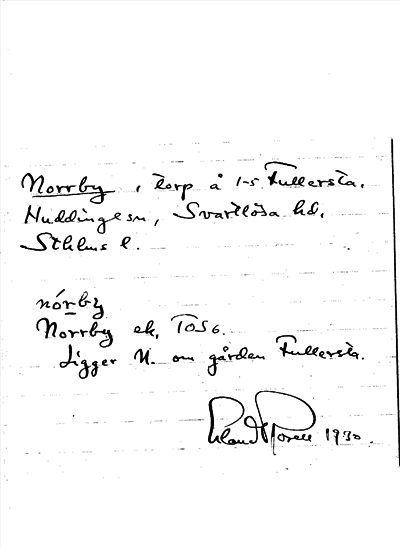 Norrby, torp å 1-5 Fullersta,
Huddinge sn, Svartlösa hd.
Sthlms l.
nórby
Norrby ek, TOS6.
Ligger N. om gården Fullersta.
1930.